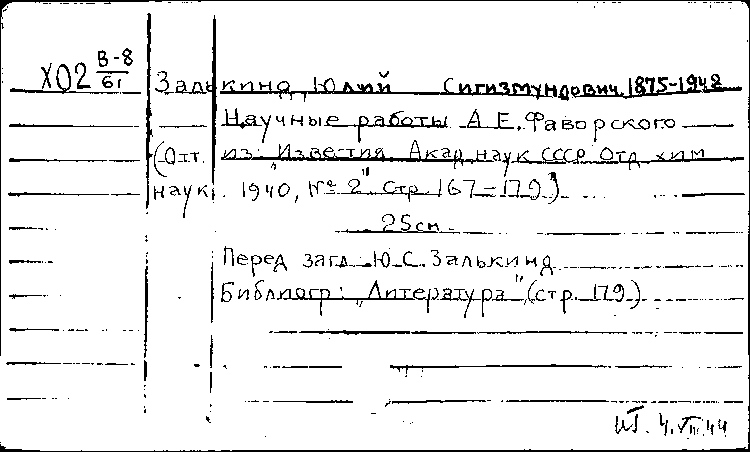 Х02 В-8/61
Залькинд, Юлий Сигизмундович. 1875-1948
Научные работы А. Е. Фаворского
(Отт. из: "Известия Акад. наук СССР. Отд. хим
наук. 1940, № 2". Стр. 167-179)
25см.
Перед загл.: Ю. С. Залькинд
Библиогр: "Литература" (стр. 179)
4.VIII.44